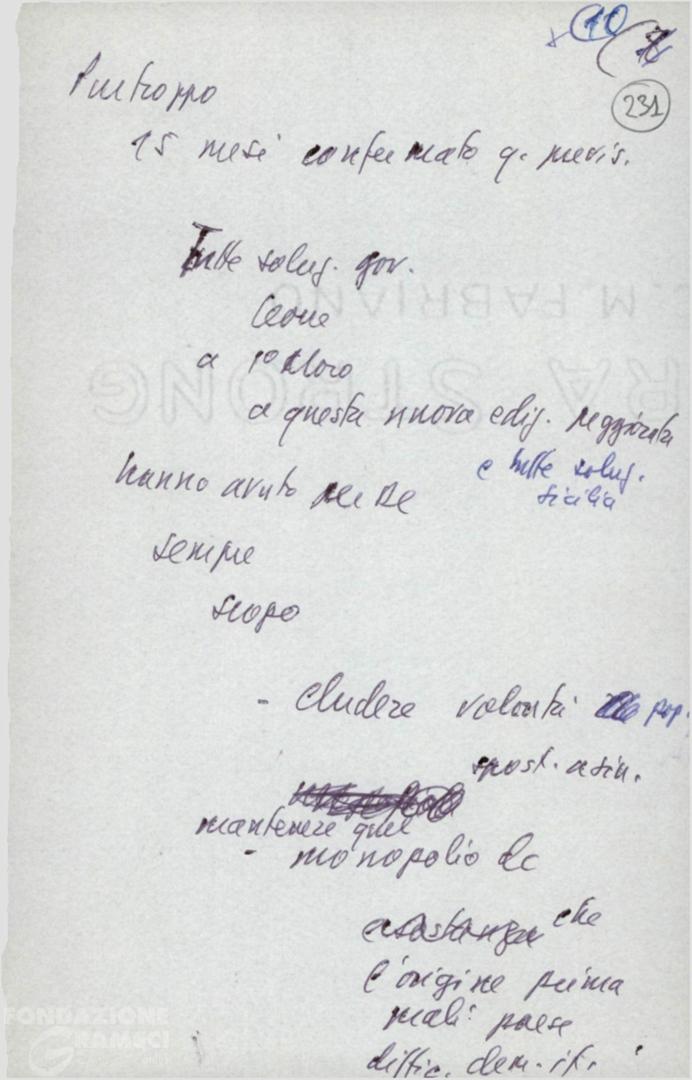 (10 (
231
Purtroppo
15 mesi confermato q. previs.
Tutte soluz. gov.
Leone
a 1º Moro
a questa nuova ediz. peggiorata
e tutte soluz.
Sicilia
hanno avuto per DC
sempre
scopo
- eludere volontà pop.
spost. a sin.
mantenere quel
- monopolio dc
che
è origine prima
mali paese
diffic. dem. it.
C. M. FABRIANO
RA STRONG
FONDAZIONE
GRAMSCI